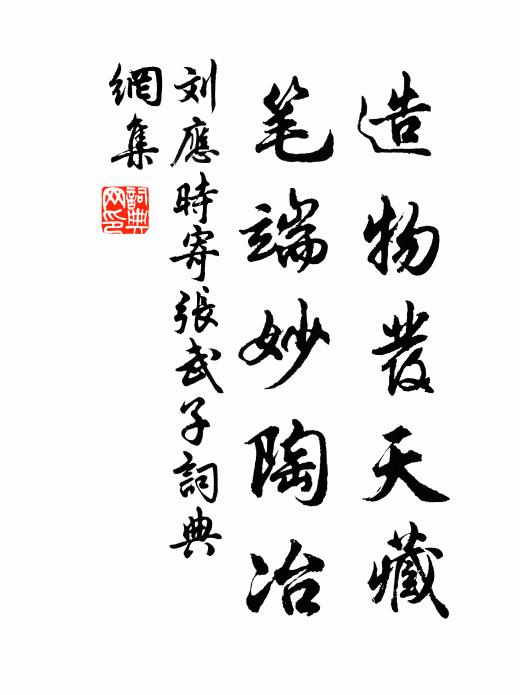 造物發天藏
笔端妙陶冶
刘應時寄張武子詞典
網集
詞典
网印